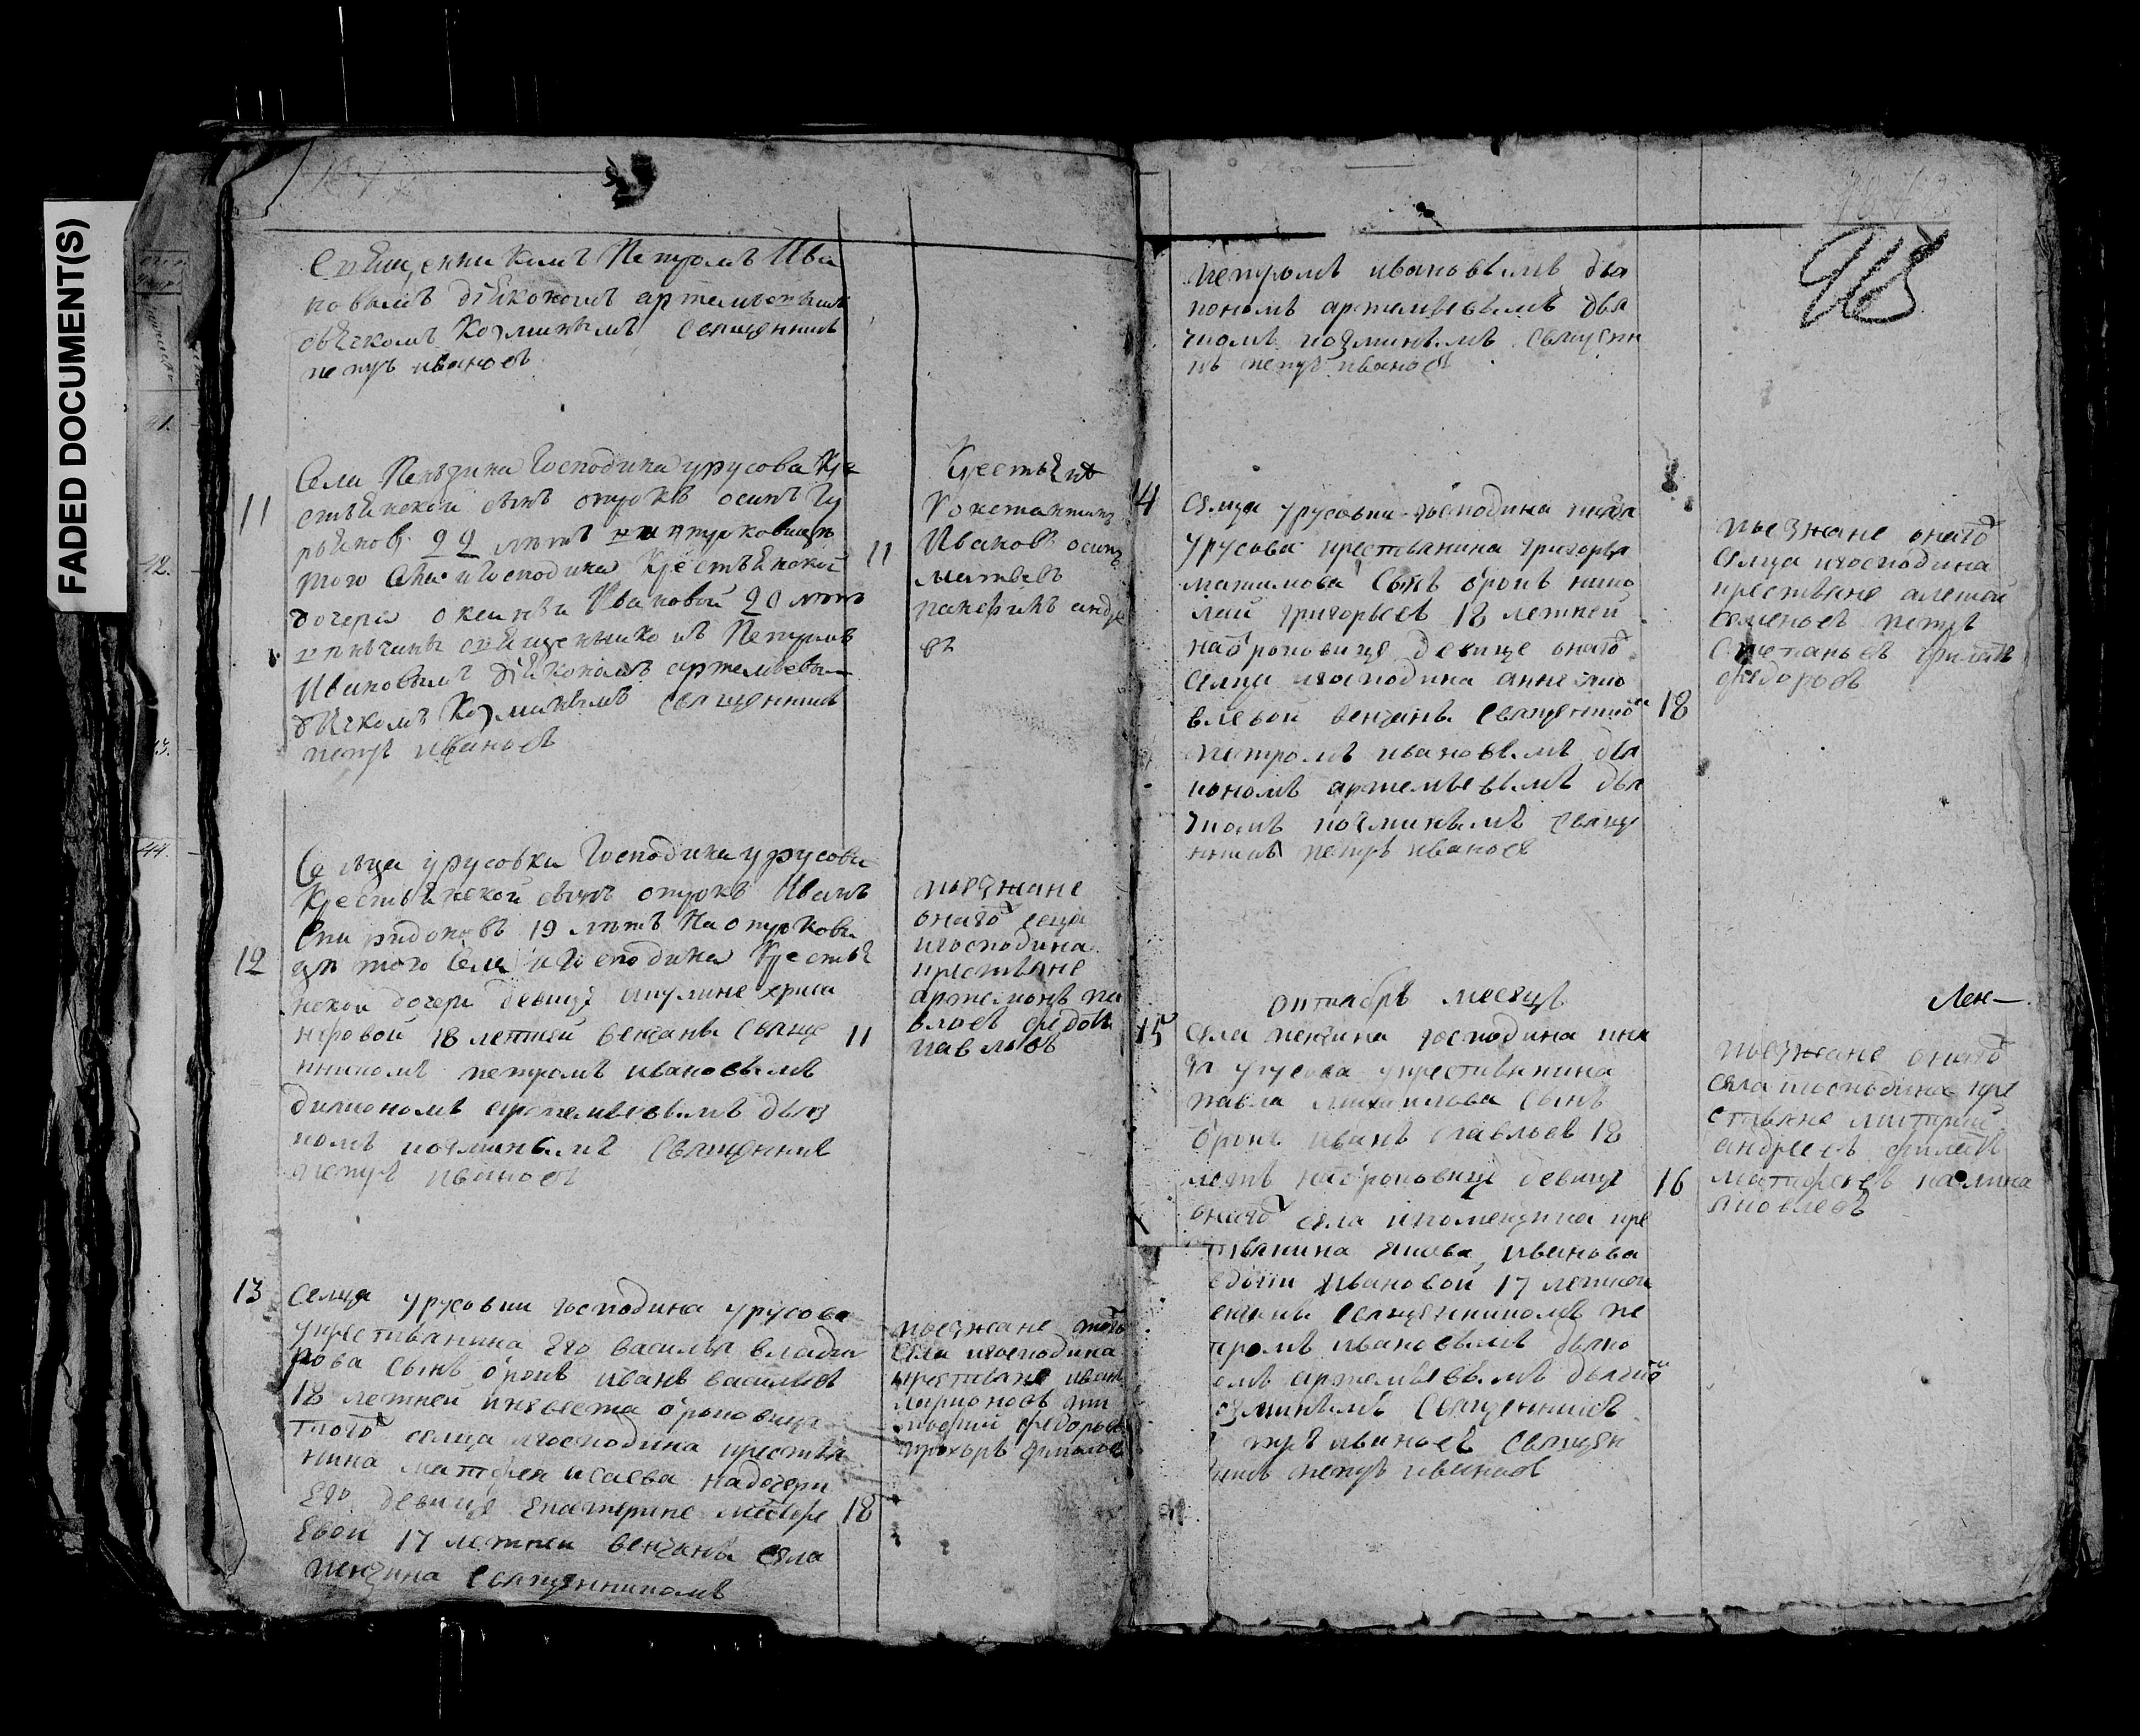 FADED DOCUMENT(S)
Священникомъ Петромъ Ива
новымъ дьякономъ артемьевымъ
дьячкомъ Козминымъ священникъ
петръ ивановъ
11
Села Пензина Господина урусова Кре
стьянской сынъ отрокъ осипъ
22 летъ
того села и Господина Крестьянской
дочери Ивановой 20 летъ
венчаны священникомъ Петромъ
Ивановымъ дьякономъ артемьевы
дьячкомъ Козминымъ священникъ
петръ ивановъ
11
Крестьяне
Константинъ
Ивановъ осипъ
матвевъ
андре
въ
12
Сельца урусовки Господина урусова
Крестьянской сынъ отрокъ Иванъ
Спиридоновъ 19 летъ На отрокови
це того села и Господина Крестья
нской дочери девице акулине
18 летней венчаны свяще
нникомъ петромъ ивановымъ
диякономъ артемьевымъ дьяч
комъ козминымъ священникъ
петръ ивановъ
11
поезжане
онаго села
и господина
крестьяне
артемонъ па
вловъ федотъ
павловъ
13
Селца урусовки господина урусова
у крестьянина его василья
сынъ отрокъ иванъ васильевъ
18 летней и невеста отроковица
того селца и господина крестья
нина матфея исаева на дочери
его девице екатерине матфе
евой 17 летней венчаны села
пензина священникомъ
18
поезжане того
села и господина
крестьяне иванъ
федоровъ
прохоръ
петромъ ивановымъ дья
кономъ артемьевымъ дья
чкомъ козминымъ священни
къ петръ ивановъ
965
14
Селца урусовки господина князя
урусова крестьянина григорья
сынъ отрокъ нико
лай григорьевъ 18 летней
на отроковице девице онаго
селца и господина анне
влевой венчаны священнико
петромъ ивановымъ дья
кономъ артемьевымъ дья
чкомъ козминымъ свяще
нникъ петръ ивановъ
18
поезжане онаго
селца и господина
крестьяне алексей
семеновъ петръ
степановъ филатъ
федоровъ
октябрь месяцъ
15
села пензина господина кня
зя урусова у крестьянина
павла михаилова сынъ
отрокъ иванъ павловъ 18
летъ на отроковице девице
онаго села и помещика кре
стьянина якова иванова
Ивановой 17 летней
венчаны священникомъ пе
тромъ ивановымъ дьяко
омъ артемьевымъ дьячко
озминымъ священникъ
петръ ивановъ священ
никъ петръ ивановъ
16
Лен—
поезжане онаго
села и господина кре
стьяне митрий
андреевъ филатъ
матфеевъ калина
яковлевъ